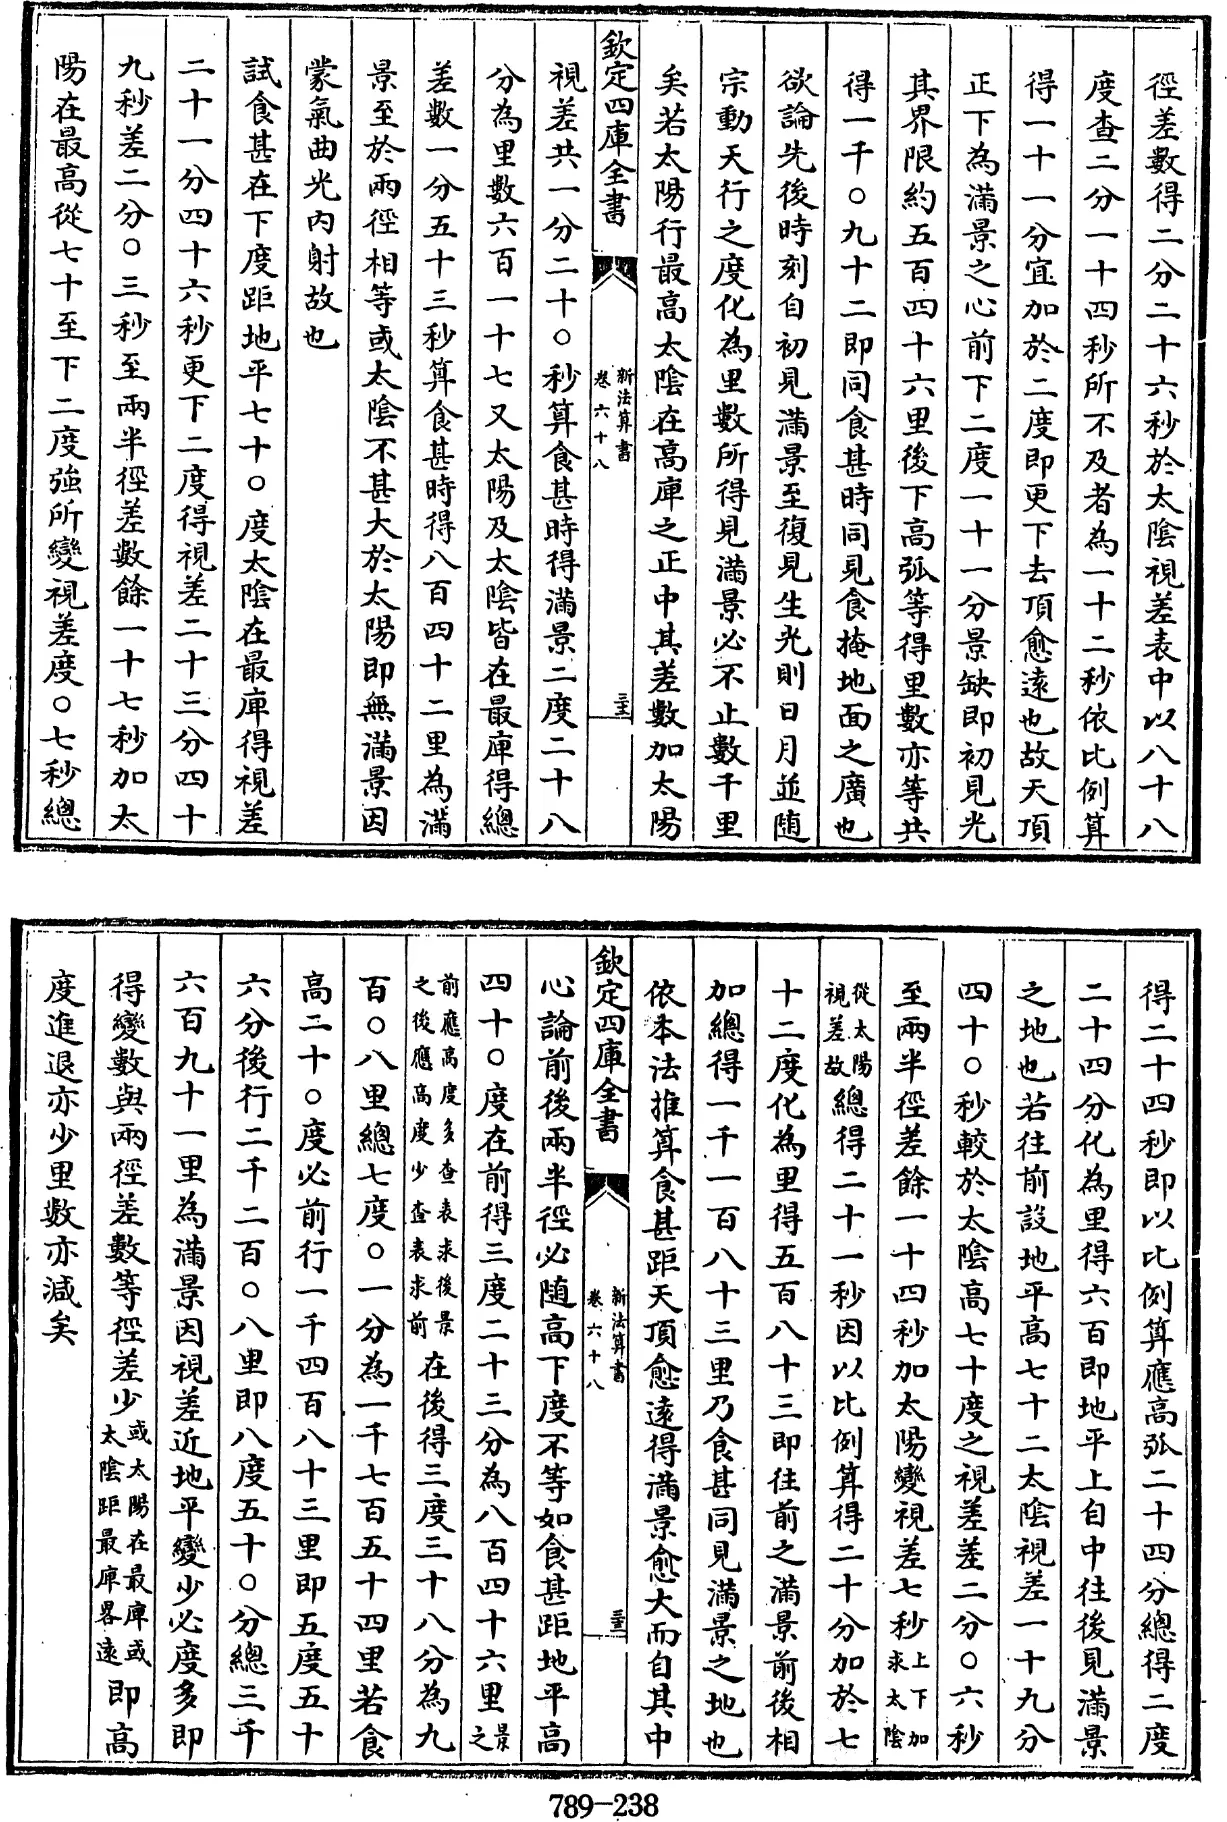 徑差數得二分二十六秒於太陰視差表中以八十八
度查二分一十四秒所不及者為一十二秒依比例算
得一十一分宜加於二度即更下去頂愈遠也故天頂
正下為滿景之心前下二度一十一分景缺即初見光
其界限約五百四十六里後下高弧等得里數亦等共
得一千○九十二即同食甚時同見食掩地面之廣也
欲論先後時刻自初見滿景至復見生光則日月並随
宗動天行之度化為里數所得見滿景必不止數千里
矣若太陽行最高太陰在高庳之正中其差數加太陽
欽定四庫全書
新法算書
卷六十八
視差共一分二十○秒算食甚時得滿景二度二十八
分為里數六百一十七又太陽及太陰皆在最庳得總
差數一分五十三秒算食甚時得八百四十二里為滿
景至於兩徑相等或太陰不甚大於太陽即無滿景因
蒙氣曲光内射故也
試食甚在下度距地平七十○度太陰在最庳得視差
二十一分四十六秒更下二度得視差二十三分四十
九秒差二分○三秒至兩半徑差數餘一十七秒加太
陽在最高從七十至下二度強所變視差度○七秒總
得二十四秒即以比例算應高弧二十四分總得二度
二十四分化為里得六百即地平上自中往後見滿景
之地也若往前設地平高七十二太陰視差一十九分
四十○秒較於太陰高七十度之視差差二分○六秒
至兩半徑差餘一十四秒加太陽變視差七秒上下加求太陰
從太陽視差故總得二十一秒因以比例算得二十分加於七
十二度化為里得五百八十三即往前之滿景前後相
加總得一千一百八十三里乃食甚同見滿景之地也
依本法推算食甚距天頂愈遠得滿景愈大而自其中
欽定四庫全書
新法算書
卷六十八
心論前後兩半徑必随高下度不等如食甚距地平高
四十○度在前得三度二十三分為八百四十六里景之
前應高度多查表求後景之後應高度少查表求前在後得三度三十八分為九
百○八里總七度○一分為一千七百五十四里若食
高二十○度必前行一千四百八十三里即五度五十
六分後行二千二百○八里即八度五十○分總三千
六百九十一里為滿景因視差近地平變少必度多即
得變數與兩徑差數等徑差少或太陽在最庳或太陰距最庳畧遠即高
度進退亦少里數亦減矣
789-238